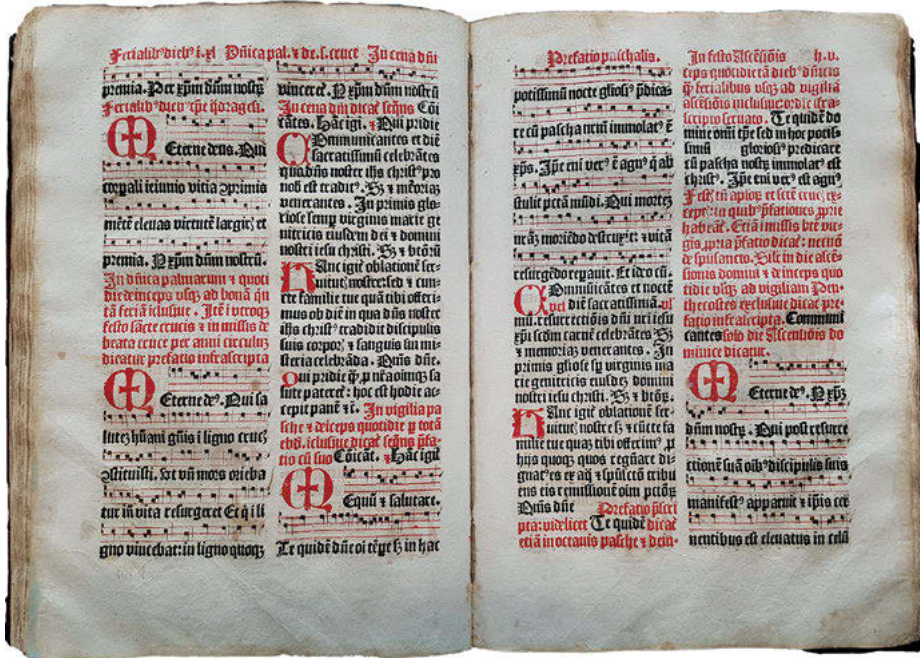 Ferialibꝰ diebꝰ i. xl Dñica pal. ⁊ de .s. cruce In cena dñi
premia. Per xp̄m dn̄m nostrū
Ferialibꝰ diebꝰ
Eterne deus. Qui
corpali ieiunio vitia ꝯprimis
mētē eleuas virtutē largir̄ et
premia. P xp̄m dn̄m nostrū.
In dn̄ica palmarum ⁊ quoti
die deinceps vsqꝫ ad bonā qn̄
tā feriā iclusiue. Itē i vtroqꝫ
festo sācte crucis ⁊ in missis de
beata cruce per anni circulum
dicatur prefatio infrascripta
Eterne deꝰ. Qui sa
lutez hūani gn̄is i ligno crucꝭ
ꝯstituisti. vt vn̄ mors orieba
tur in vita resurgeret Et q̄ i li
gno vincebat: in ligno quoqꝫ
vinceret. P xp̄m dn̄m nostrū
In cena dn̄i dicat̄ seqn̄s Cōi
cātes. Hāc igi. ⁊ Qui pridie
Ommunicantes et diē
sacratissimū celebrātes
quo dn̄s noster ihs christꝰ pro
nob est traditꝰ. Sꝫ ⁊ mēoriaꝫ
venerantes. In primis glo
riose semp virginis marie ge
nitricis eiusdem dei ⁊ domini
nostri iesu christi. Sꝫ ⁊ btōrū
Anc igit̄ oblationē ser
uitutꝭ nostre: sed ⁊ cun
cte familie tue quā tibi offeri
mus ob diē in qua dn̄s noster
ihs christꝰ tradidit discipulis
suis corporꝭ ⁊ sanguis sui mi
steria celebrāda. Qm̄s dn̄e.
Qui pridie q̄ꝫ p nr̄a oīmqꝫ sa
lute pateret̄: hoc est hodie ac
cepit panē ⁊c̄. In vigilia pa
sche ⁊ deīceps quotidie p totā
ebd. iclusiue dicat̄ seqn̄s p̄fa
tio cū suo Cōicāt. ⁊ Hāc igit̄
Equū ⁊ salutare.
Te quidē dn̄e oī tēpe sꝫ in hac
Prefatio paschalis.
potissimū nocte gliosiꝰ p̄dica
re cū pascha nr̄m immolatꝰ ē
xp̄s. Ip̄e eni verꝰ ē agnꝰ q̄ ab
stulit pctā mūdi. Qui mortez
nr̄aꝫ moriēdo destruxit: ⁊ vitā
resurgēdo repauit. Et ideo cū.
Ommunicātes et noctē
vel diē sacratissimā. vl
mū. resurrectiōis dn̄i nr̄i iesu
xp̄i scd̄m carnē celebrātes Sꝫ
⁊ memoriaꝫ venerantes. In
primis gliose sp̄ virginis ma
rie genitricis eiusdeꝫ domini
nostri iesu christi. Sꝫ ⁊ btōꝝ.
Anc igit̄ oblationē ser
uitutꝭ nostre sꝫ ⁊ cūcte fa
milie tue quaꝫ tibi offerimꝰ p
hijs quoqꝫ quos regn̄are di
gnatꝰ es ex aq̄ ⁊ sp̄usctō tribu
ens eis remissionē oīm pctōꝝ
Qm̄s dn̄e Prefatio p̄scri
pta: videlicet Te quidē dicat̄
etiā in octauis pasche ⁊ dein-
In festo Ascēsiōis h.v.
ceps quotidie tā diebꝰ dn̄icis
q̄ ferialibus vsqꝫ ad vigiliā
ascēsiōis inclusiue ordie ifra-
scripto seruato. Te quidē do
mine omni tp̄e sed in hoc potis-
simū gloriosiꝰ predicare
cū pascha nostꝝ immolatꝰ est
christꝰ. Ip̄e eni verꝰ est agnꝰ
ceptis: in quibꝰ p̄fationes ꝓprie
habeāt̄. Etiā i missis btē vir-
gis ꝓpria p̄fatio dicat̄: necnō
de sp̄usancto. Silr̄ in die ascē-
sionis domini ⁊ deinceps quo
tidie vsqꝫ ad vigiliam Pen
thecostes exclusiue dicat̄ pre
fatio infrascripta. Communi
cantes solo die Ascensiōis do
minice dicatur.
Eterne deꝰ. P xp̄ꝫ
dn̄m nostꝝ. Qui post resurre
ctionē suā oībꝰ discipulis suis
manifestꝰ apparuit ⁊ ip̄is cer
nentibus est eleuatus in celū